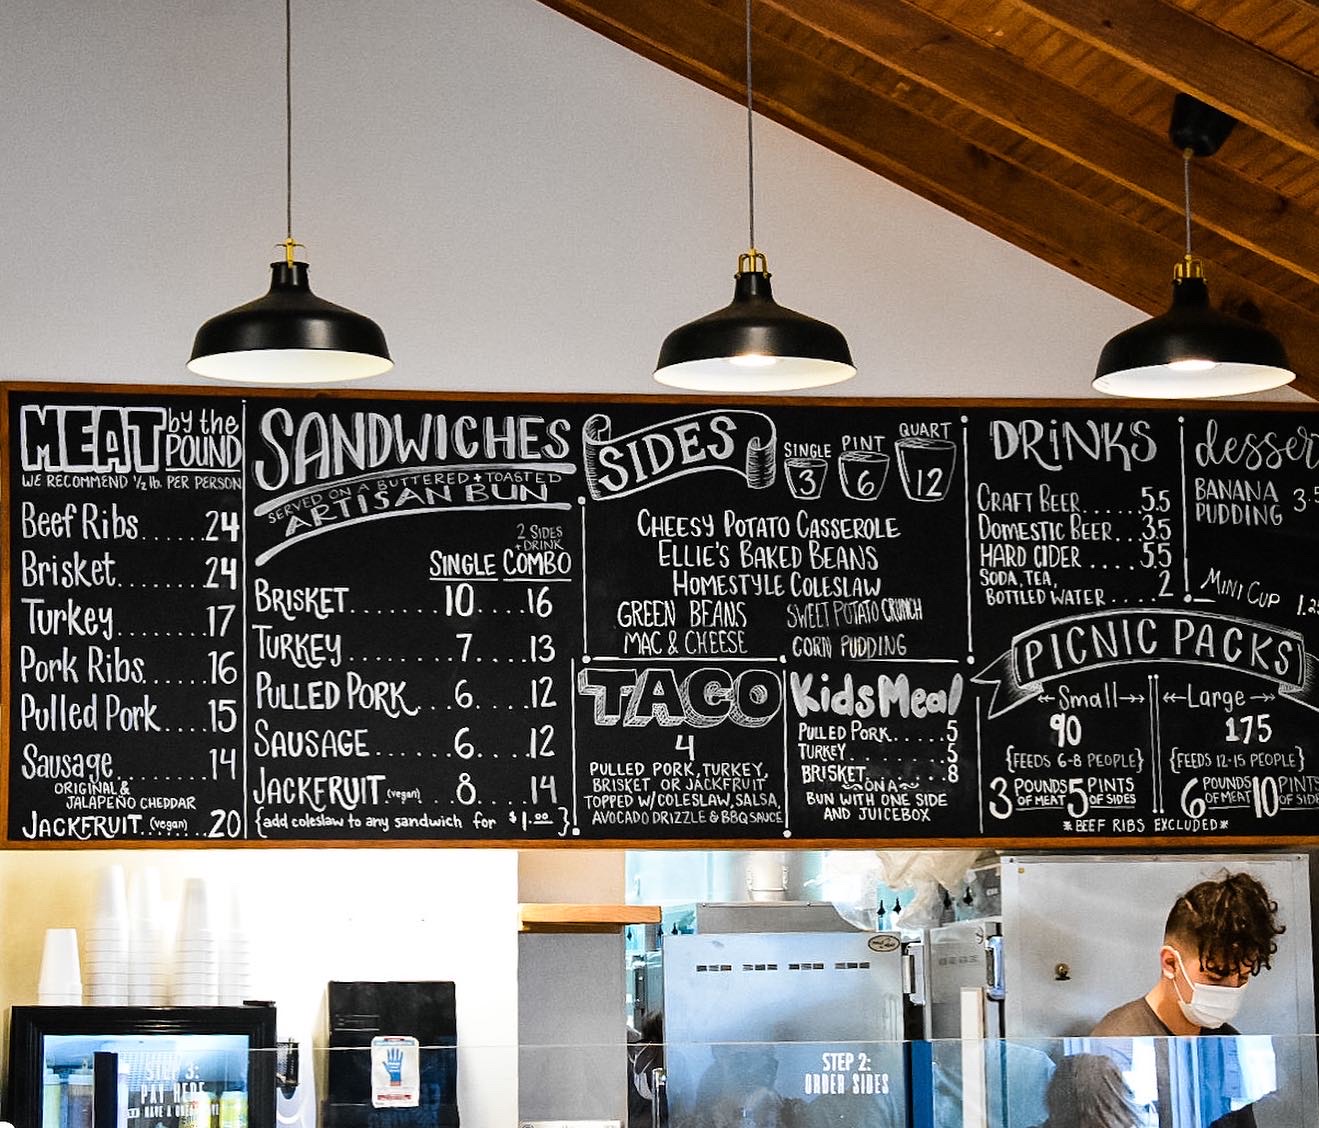 MEAT by the POUND
WE RECOMMEND ½ lb. PER PERSON
Beef Ribs......24
Brisket........24
Turkey........17
Pork Ribs...16
Pulled Pork....15
Sausage........14
ORIGINAL &
JALAPEÑO CHEDDAR
JACKFRUIT (vegan)......20
SANDWICHES
SERVED ON A BUTTERED + TOASTED
ARTISAN BUN
2 SIDES
+ DRINK
SINGLE COMBO
BRISKET.......10....16
TURKEY.........7....13
PULLED PORK...6....12
SAUSAGE.......6....12
JACKFRUIT (vegan)...8....14
{add coleslaw to any sandwich for $1.00}
SIDES
SINGLE PINT QUART
3 6 12
CHEESY POTATO CASSEROLE
ELLIE'S BAKED BEANS
HOMESTYLE COLESLAW
GREEN BEANS SWEET POTATO CRUNCH
MAC & CHEESE CORN PUDDING
TACO
4
PULLED PORK, TURKEY,
BRISKET OR JACKFRUIT
TOPPED W/COLESLAW, SALSA,
AVOCADO DRIZZLE & BBQ SAUCE
Kids Meal
PULLED PORK......5
TURKEY..........5
BRISKET........8
~ON A~
BUN WITH ONE SIDE
AND JUICEBOX
DRINKS
CRAFT BEER......5.5
DOMESTIC BEER...3.5
HARD CIDER.....5.5
SODA, TEA,
BOTTLED WATER.....2
desser
BANANA
PUDDING 3.5
MINI CUP 1.25
PICNIC PACKS
←Small→ ←Large→
90 175
{FEEDS 6-8 PEOPLE} {FEEDS 12-15 PEOPLE}
3 POUNDS OF MEAT 5 PINTS OF SIDES 6 POUNDS OF MEAT 10 PINTS OF SIDE
*BEEF RIBS EXCLUDED*
STEP 3:
PAY HERE
STEP 2:
ORDER SIDES